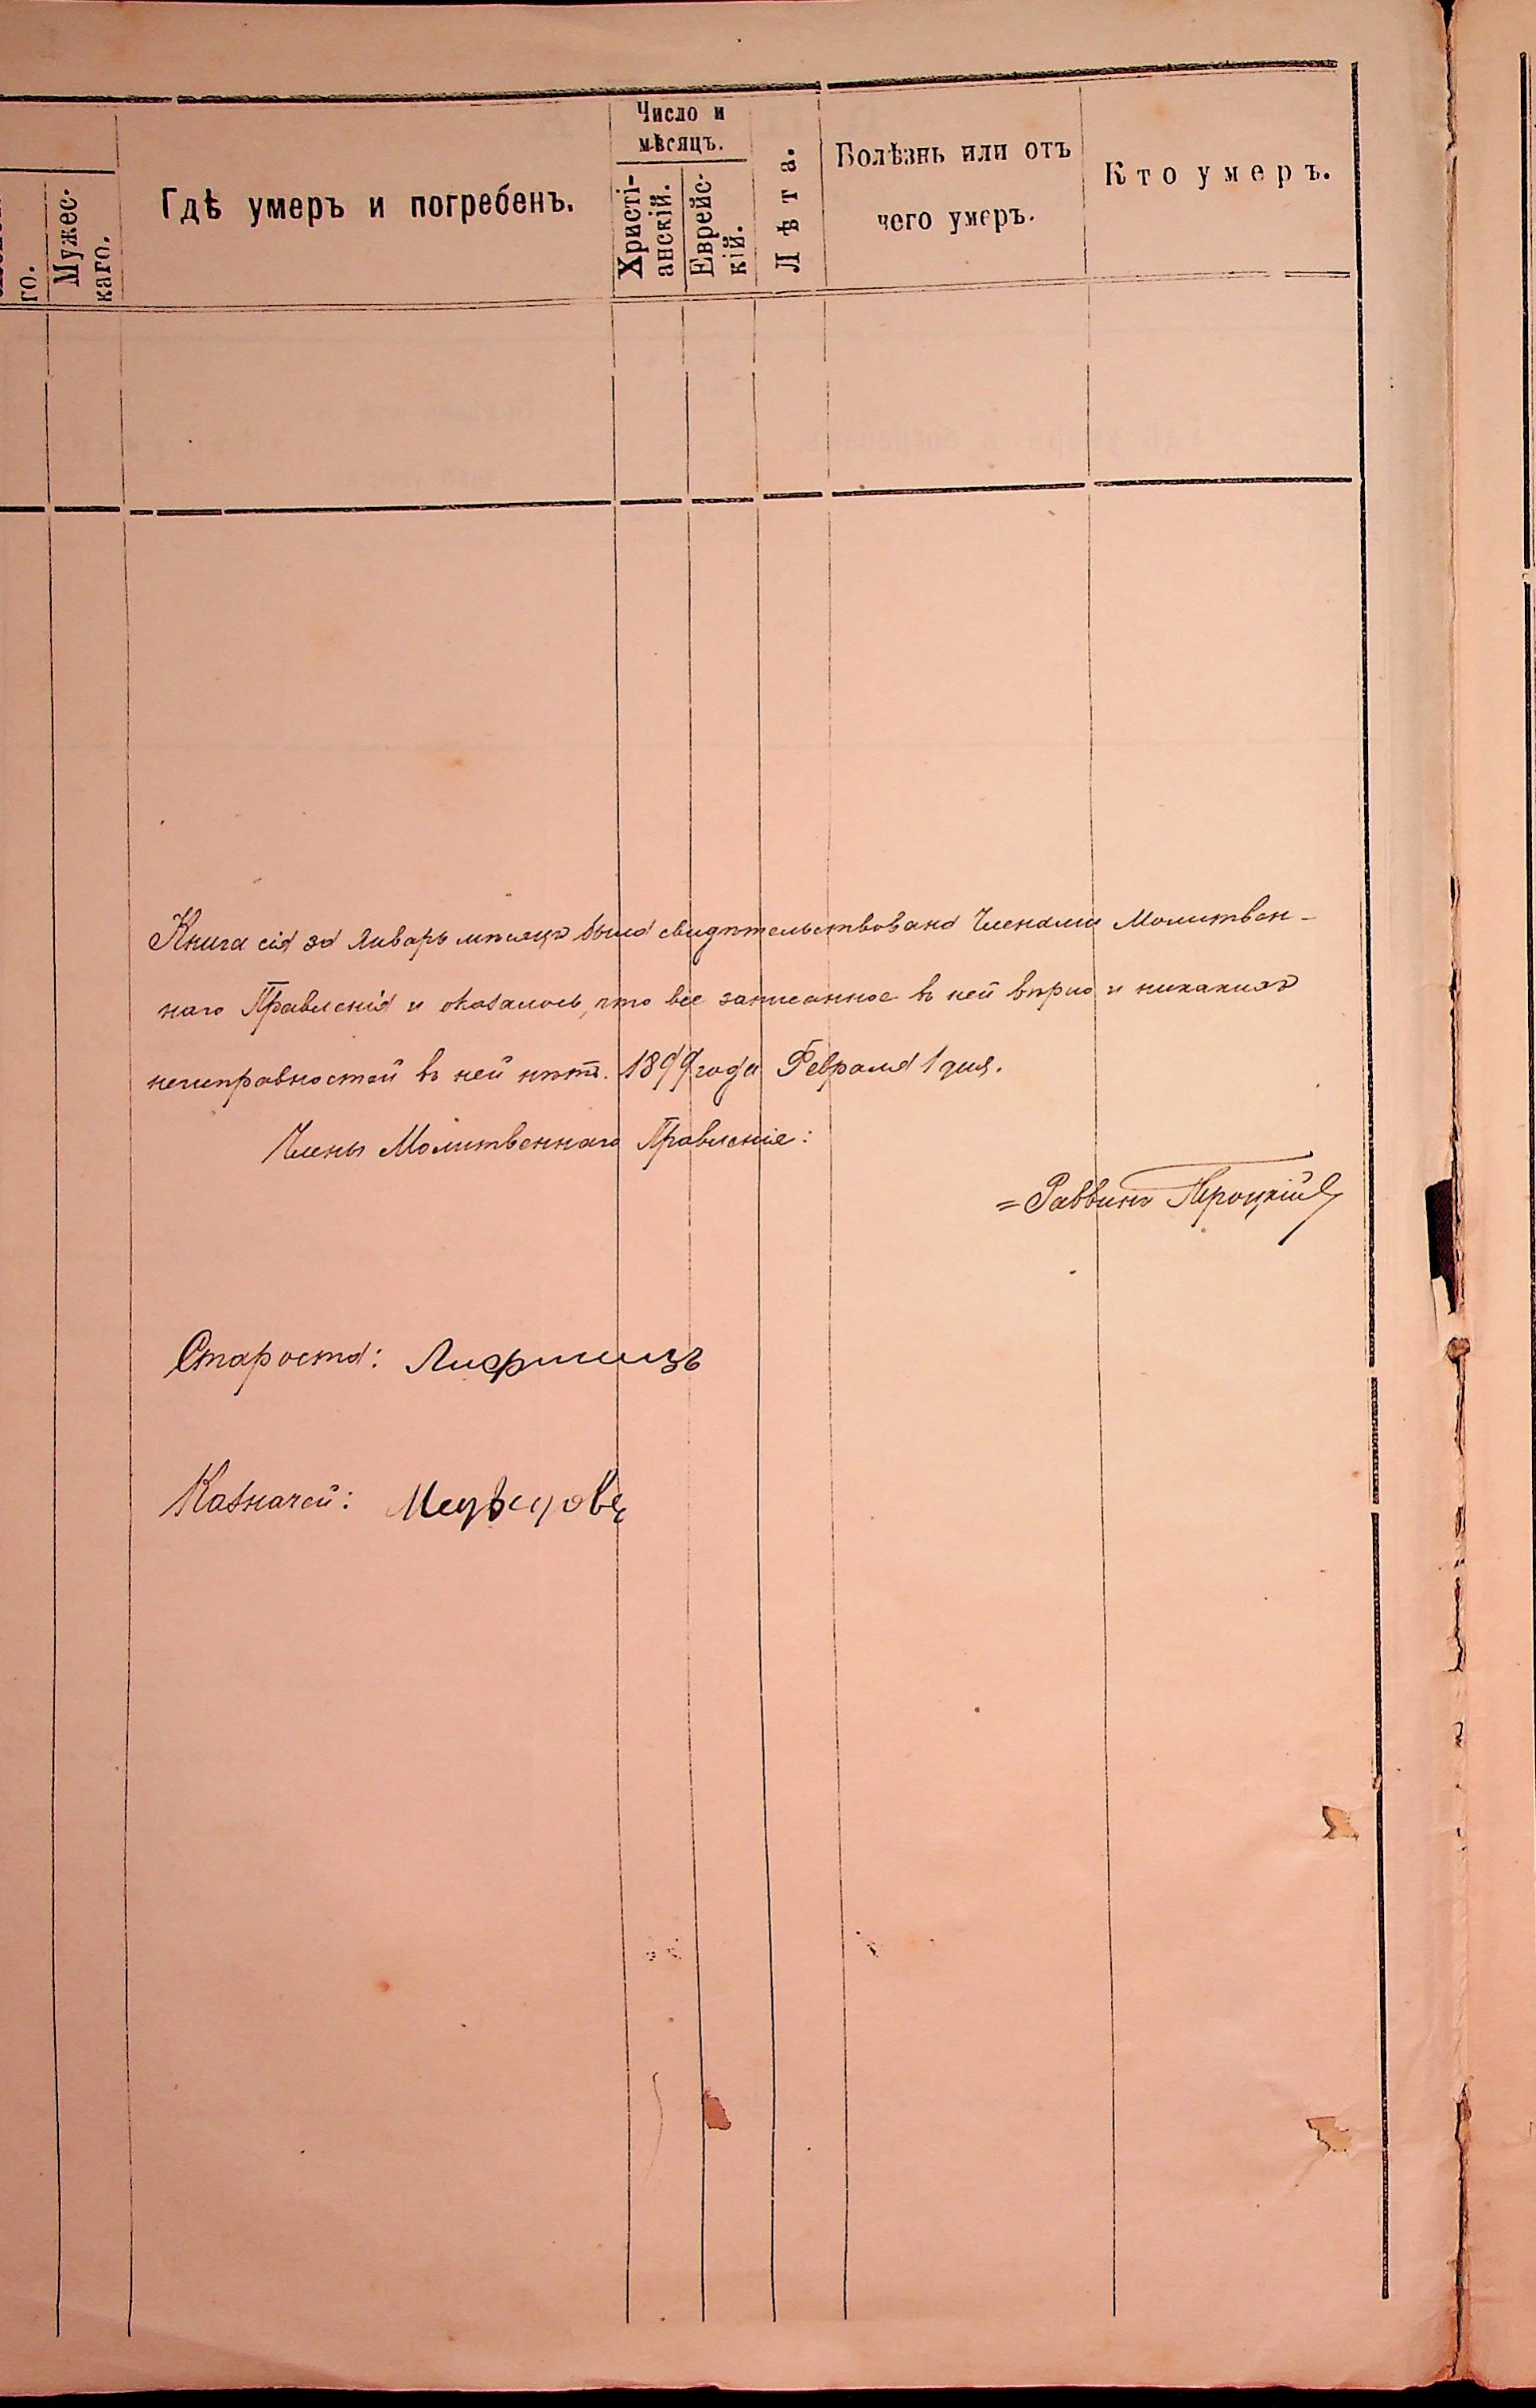 го.
Мужес-
каго.
Гдѣ умеръ и погребенъ.
Число и
мѣсяцъ.
Христі-
анскій.
Еврейс-
кій.
Лѣта.
Болѣзнь или отъ
чего умеръ.
Кто умеръ.
Книга сія за Январь мѣсяцъ была свидѣтельствована Членами Молитвен-
наго Правленія и оказалось, что все записанное въ ней вѣрно и никакихъ
неисправностей въ ней нѣтъ. 1899 года Февраля 1 дня.
Члены Молитвеннаго Правленіе:
= Раввинъ
Староста: Лифшицъ
Казначей: